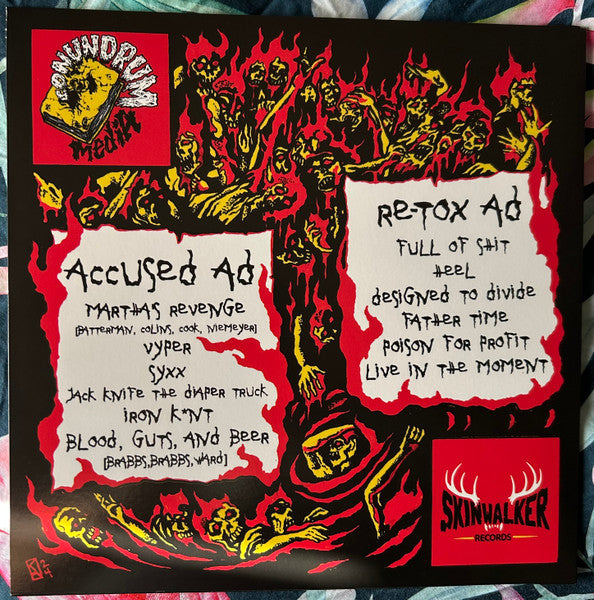 CONUNDRUM
Media
Accused AD
MARTHAS REVENGE
[BATTERMAN, COLINS, COOK, NIEMEYER]
VYPER
SYXX
JACK KNIFE THE DIAPER TRUCK
IRON K*NT
BLOOD, GUTS, AND BEER
[BRABBS,BRABBS,WARD]
RE-TOX AD
FULL OF SHIT
HEEL
DESIGNED TO DIVIDE
FATHER TIME
POISON FOR PROFIT
LIVE IN THE MOMENT
SKINWALKER
RECORDS